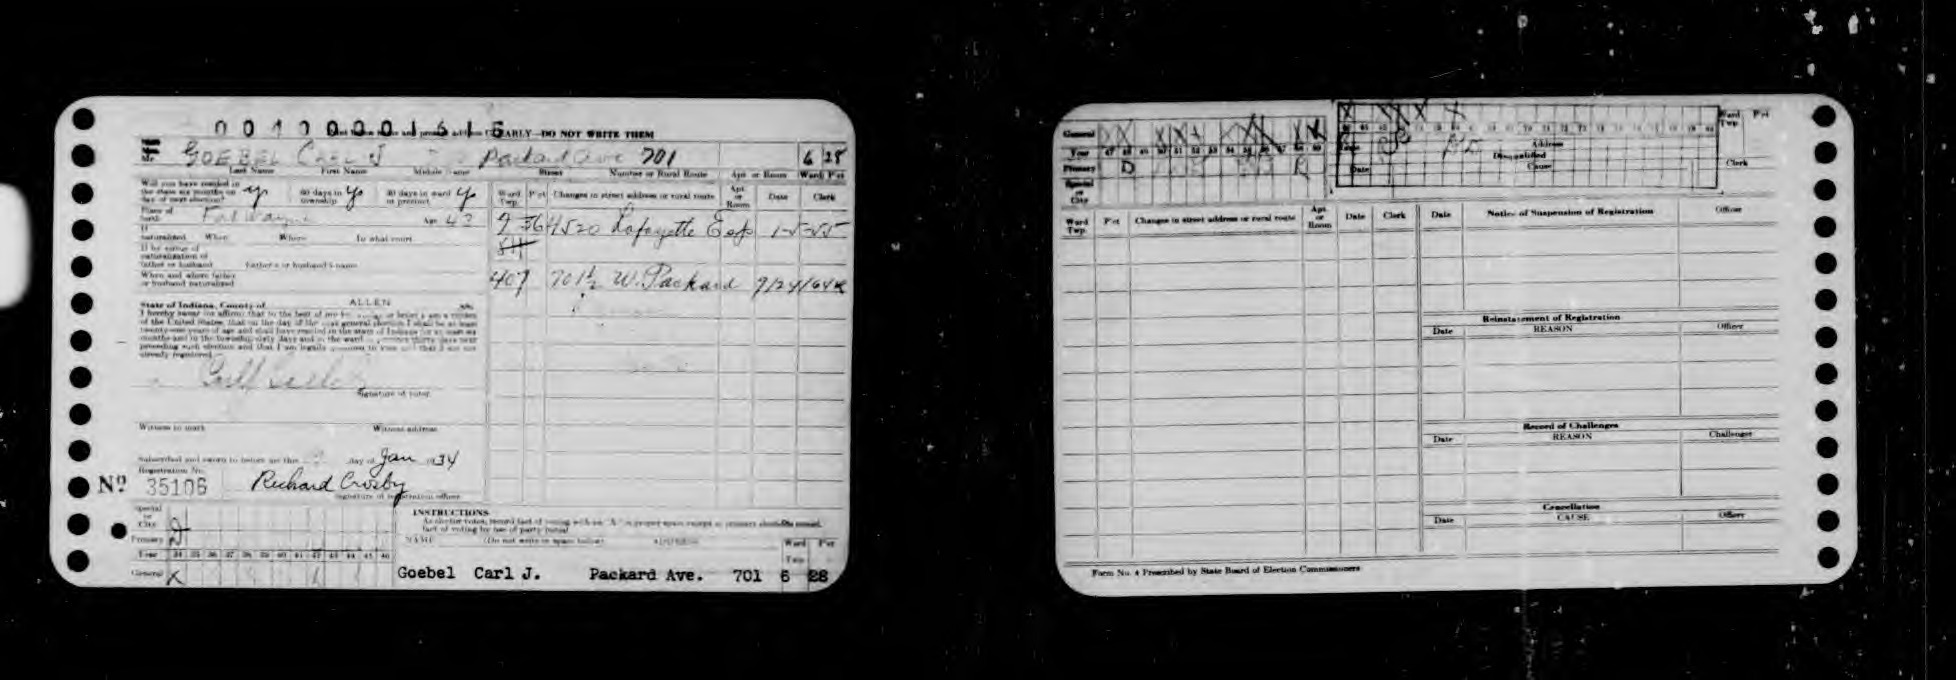 001000001616
NAMES CLEARLY—DO NOT WRITE THEM
Mr. GOEBEL CARL J Packard Ave 701 6 28
Last Name First Name Middle Name Street Number or Rural Route Apt. or Room Ward Pct
Will you have resided in the state six months on day of next election? yes 60 days in township yes 30 days in ward or precinct yes
Place of birth Fort Wayne Age 43
If naturalized When Where In what court
If by virtue of naturalization of father or husband Father's or husband's name
When and where father or husband naturalized
State of Indiana, County of ALLEN ss:
I hereby swear (or affirm) that to the best of my or belief I am a citizen
of the United States, that on the day of the next general election I shall be at least
twenty-one years of age and shall have resided in the state of Indiana for at least six
months and in the township sixty days and in the ward or precinct thirty days next
preceding such election and that I am legally to vote and that I am not
already registered.
Signature of voter
Witness to mark Witness address
Subscribed and sworn to before me this day of Jan 1934
Registration No.
No 35106 Richard Crosby
Signature of registration officer
Ward Twp. P'ct Changes in street address or rural route Apt. or Room Date Clerk
9 36 4520 Lafayette Esp 1-5-55
511
407 701½ W. Packard 9/24/64
Special or City
Primary D
Year 34 35 36 37 38 39 40 41 42 43 44 45 46
General X
INSTRUCTIONS
As elector votes, record fact of voting with an "X" in proper space except at primary election record
fact of voting by use of party initial
NAME (Do not write in space below) ADDRESS Ward Twp Pct
Goebel Carl J. Packard Ave. 701 6 28
General X X X X X X
Year 47 48 49 50 51 52 53 54 55 56 57 58 59
Primary D R
Special or City
X X X X
Address
Disqualified
Cause
Date
Ward Twp. P'ct
Clerk
Ward Twp. P'ct Changes in street address or rural route Apt. or Room Date Clerk
Date Notice of Suspension of Registration Officer
Reinstatement of Registration
Date REASON Officer
Record of Challenges
Date REASON Challenger
Cancellation
Date CAUSE Officer
Form No. 4 Prescribed by State Board of Election Commissioners